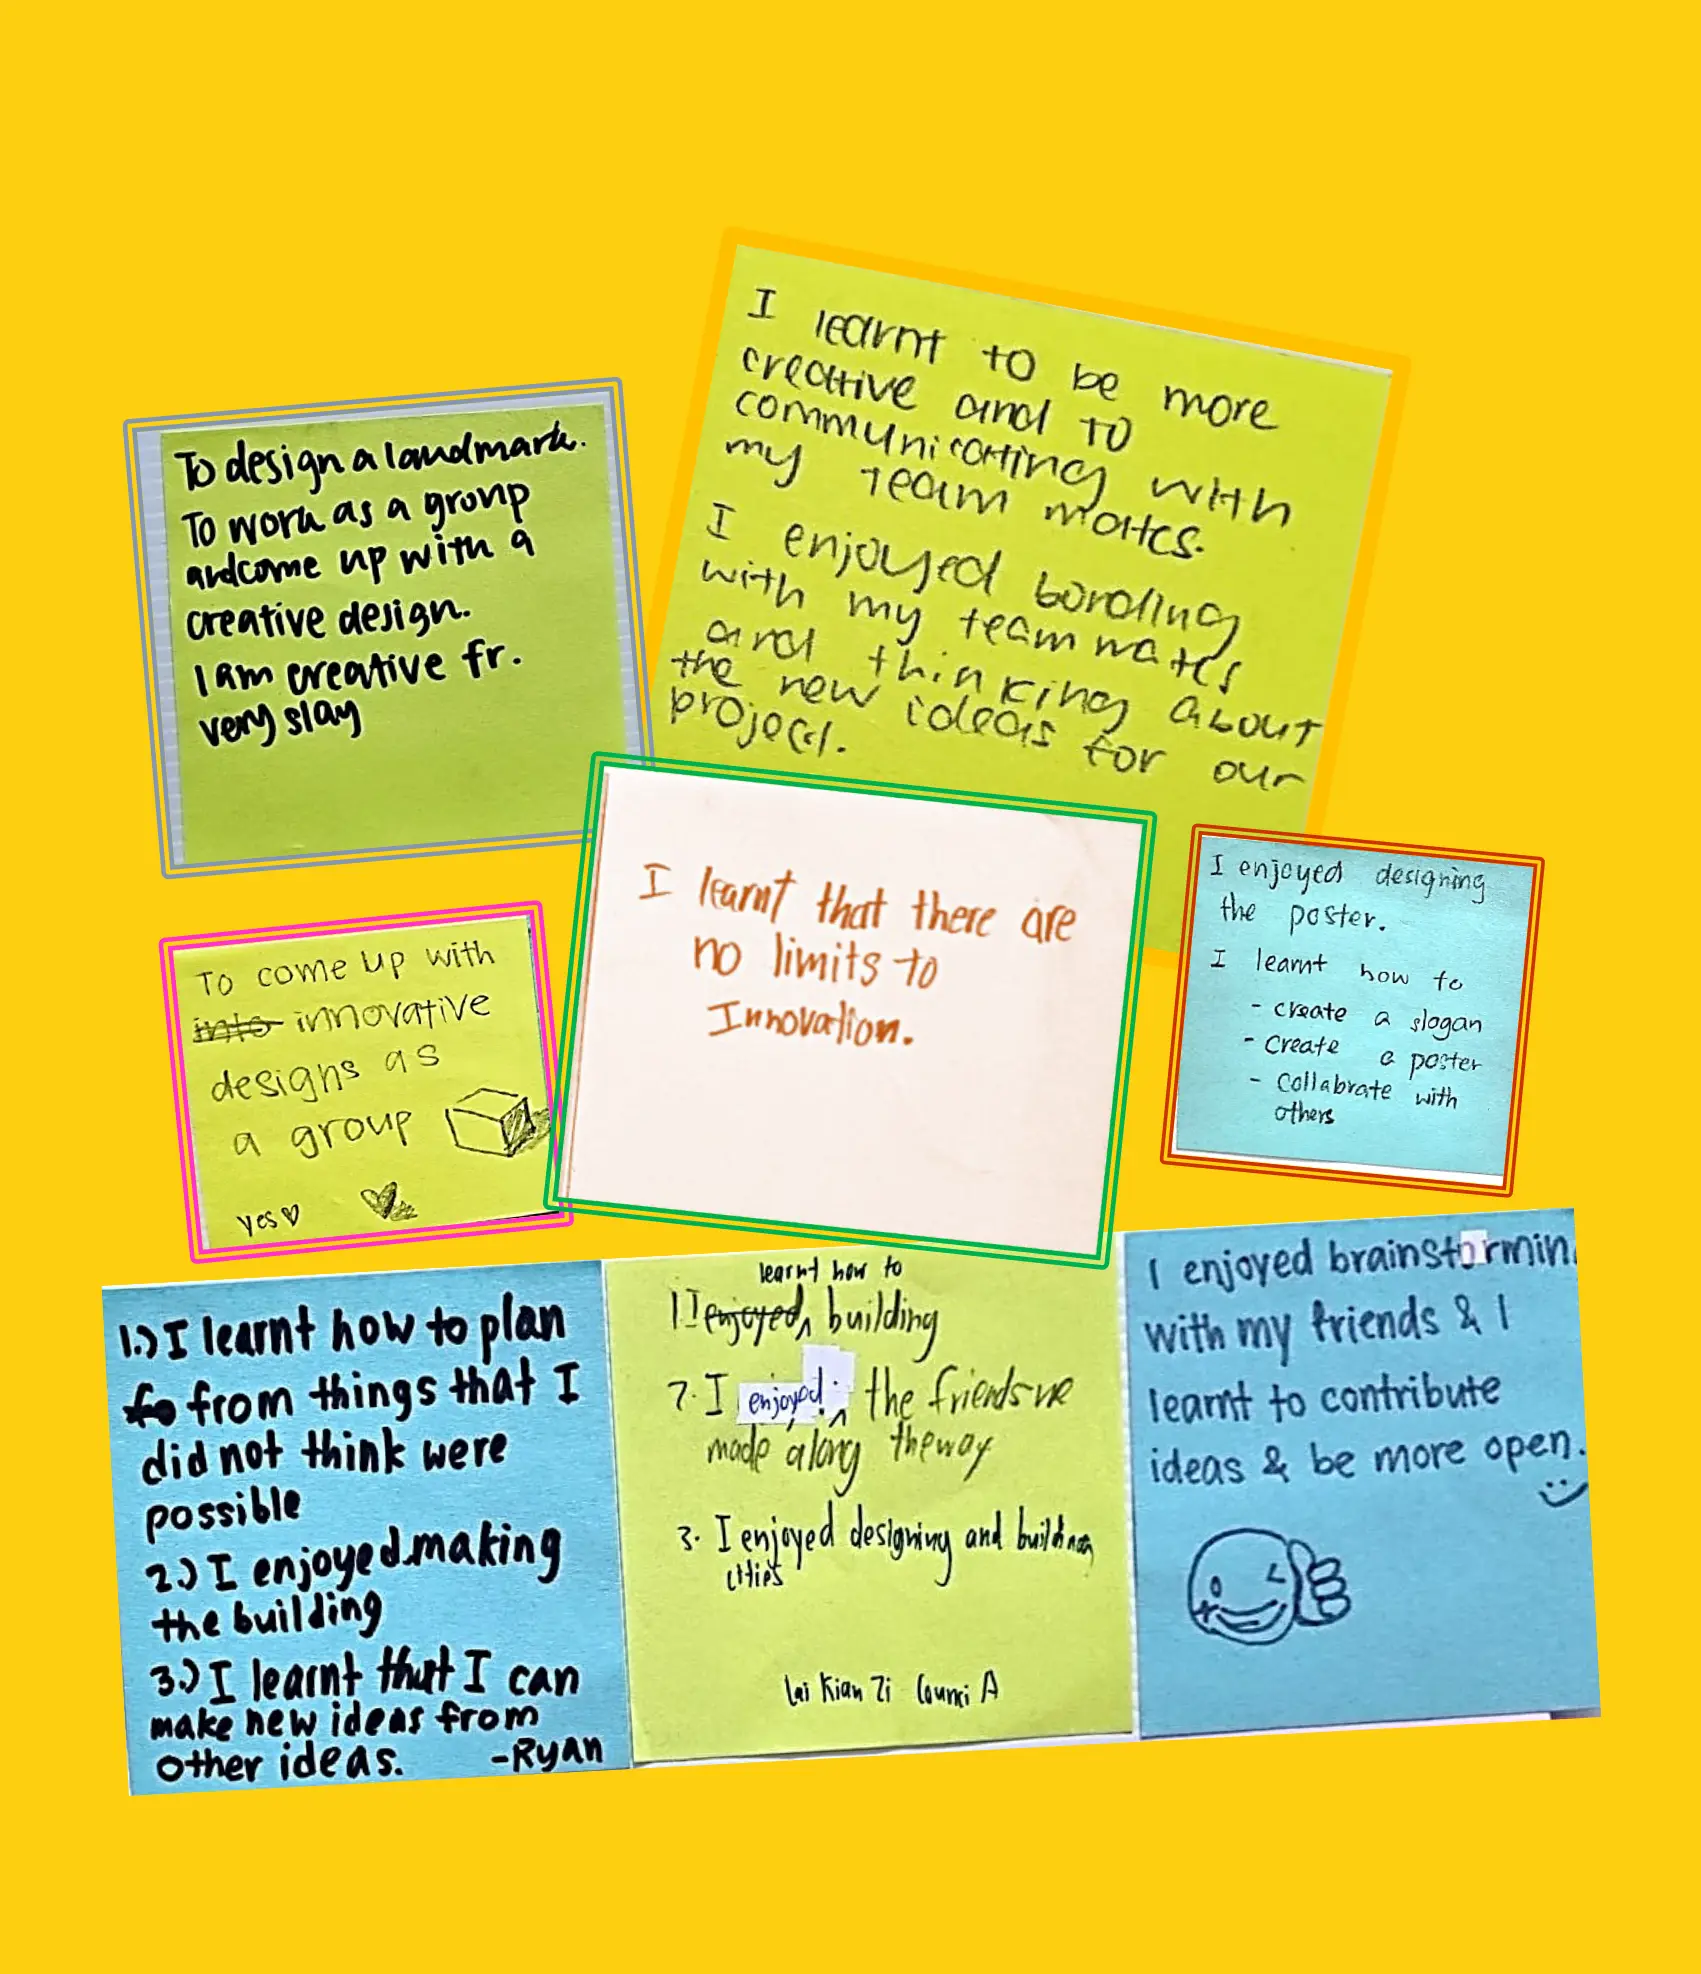 To design a landmark.
To work as a group
and come up with a
creative design.
I am creative fr.
very slay
I learnt to be more
creative and to
communicating with
my team mates.
I enjoyed
with my teammates
and thinking about
the new ideas for our
project.
To come up with
into innovative
designs as
a group
yes♡
I learnt that there are
no limits to
Innovation.
I enjoyed designing
the poster.
I learnt how to
- create a slogan
- Create a poster
- Collabrate with
others
1.) I learnt how to plan
fo from things that I
did not think were
possible
2.) I enjoyed making
the building
3.) I learnt that I can
make new ideas from
other ideas. -Ryan
learnt how to
1. I enjoyed building
2. I enjoyed the friends we
made along the way
3. I enjoyed designing and building
cities
Lai Kian Zi
I enjoyed brainstormin
with my friends & I
learnt to contribute
ideas & be more open.